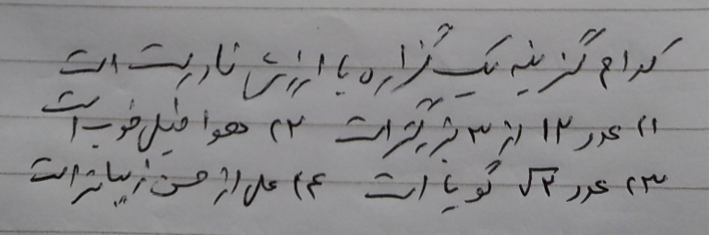 کدام گزینه یک گزاره با ارزش نادرست است
۱) عدد ۱۲ از ۳ بزرگتر است ۲) هوا خیلی خوب است
۳) عدد √۲ گویا است ۴) علی از حسن زیباتر است